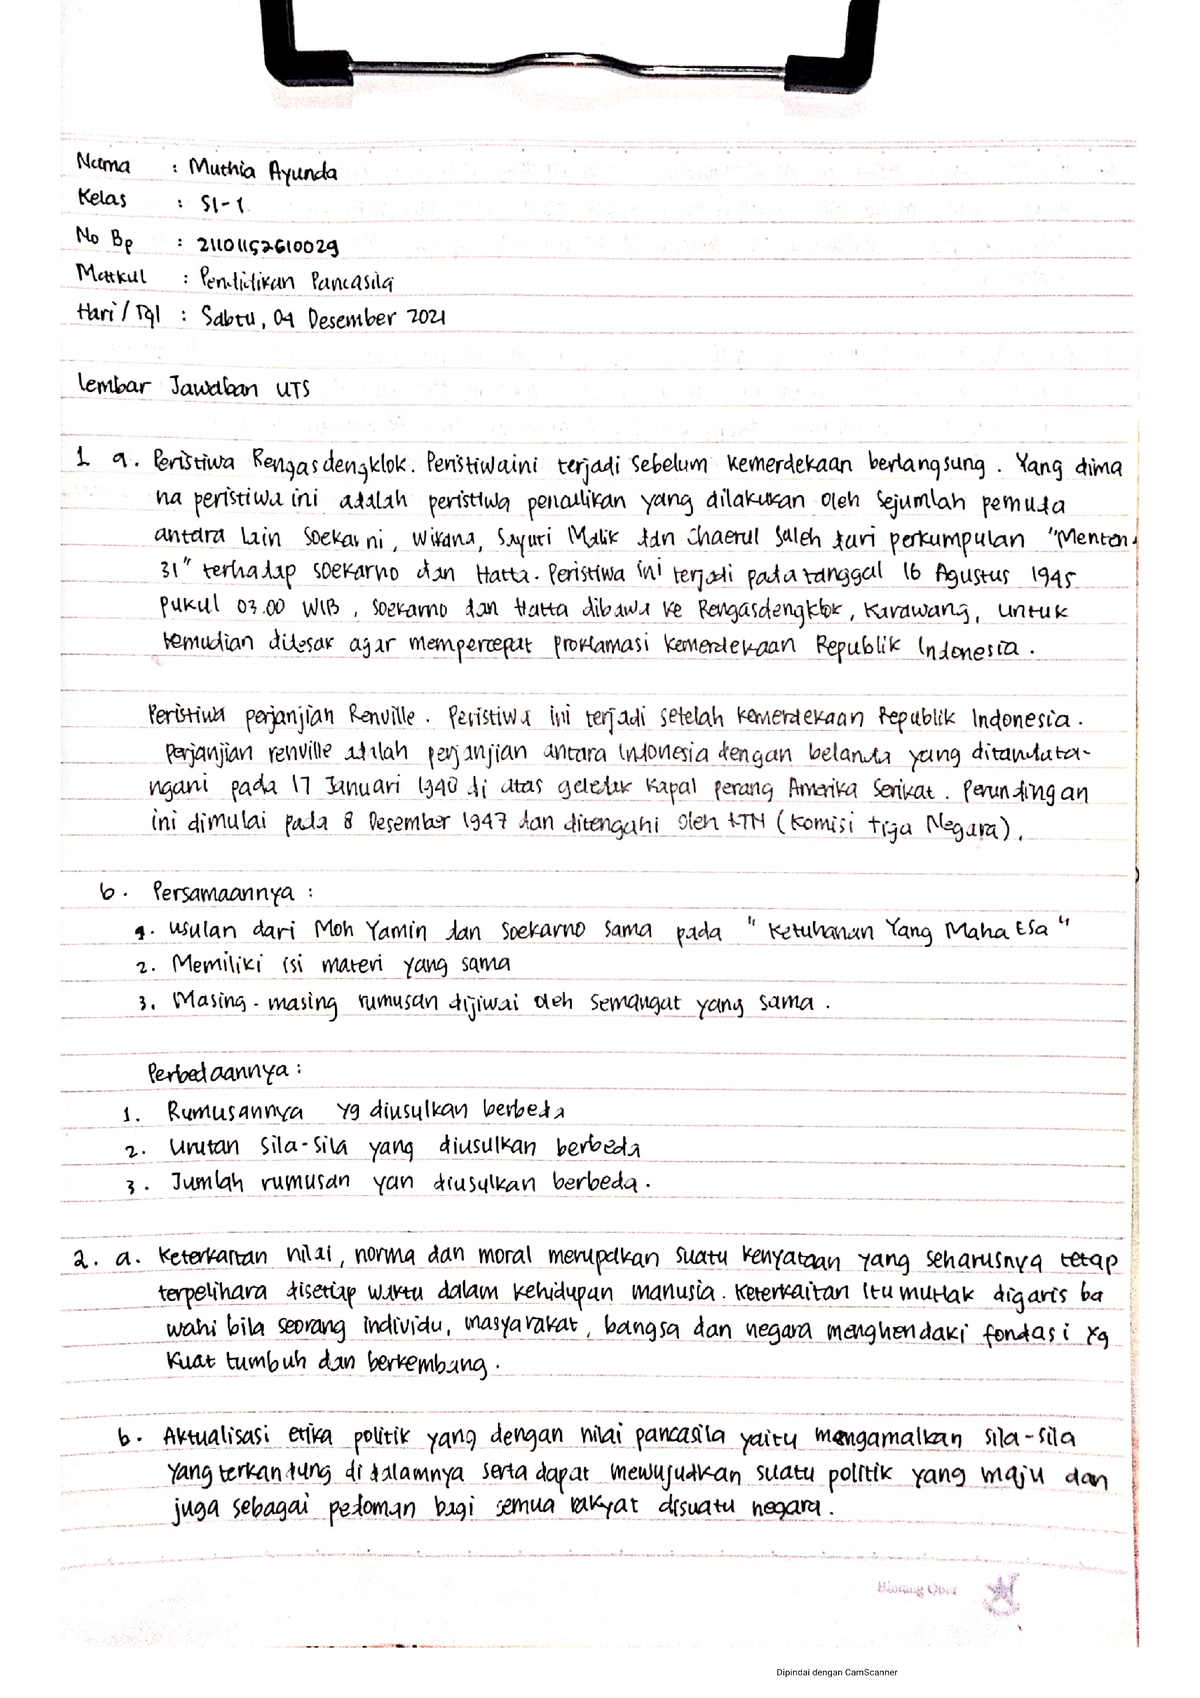 Nama : Muthia Ayunda
Kelas : SI-1
No Bp : 21101152610029
Matkul : Pendidikan Pancasila
Hari / Tgl : Sabtu, 04 Desember 2021
Lembar Jawaban UTS
1 a. Peristiwa Rengasdengklok. Peristiwa ini terjadi sebelum kemerdekaan berlangsung. Yang dima
na peristiwa ini adalah peristiwa penculikan yang dilakukan oleh sejumlah pemuda
antara lain Soekarni, Wikana, Sayuti Malik dan Chaerul Saleh dari perkumpulan "Menteng
31" terhadap Soekarno dan Hatta. Peristiwa ini terjadi pada tanggal 16 Agustus 1945
pukul 03.00 WIB, Soekarno dan Hatta dibawa ke Rengasdengklok, Karawang, untuk
kemudian didesak agar mempercepat proklamasi kemerdekaan Republik Indonesia.
Peristiwa perjanjian Renville. Peristiwa ini terjadi setelah kemerdekaan Republik Indonesia.
Perjanjian renville adalah perjanjian antara Indonesia dengan belanda yang ditandata-
ngani pada 17 Januari 1940 di atas geledak kapal perang Amerika Serikat. Perundingan
ini dimulai pada 8 Desember 1947 dan ditengahi oleh KTN (Komisi Tiga Negara).
b. Persamaannya :
1. Usulan dari Moh Yamin dan Soekarno sama pada "Ketuhanan Yang Maha Esa"
2. Memiliki isi materi yang sama
3. Masing-masing rumusan dijiwai oleh semangat yang sama.
Perbedaannya :
1. Rumusannya yg diusulkan berbeda
2. Urutan sila-sila yang diusulkan berbeda
3. Jumlah rumusan yan diusulkan berbeda.
2. a. Keterkaitan nilai, norma dan moral merupakan suatu kenyataan yang seharusnya tetap
terpelihara disetiap waktu dalam kehidupan manusia. Keterkaitan itu mutlak digaris ba
wahi bila seorang individu, masyarakat, bangsa dan negara menghendaki fondasi yg
kuat tumbuh dan berkembang.
b. Aktualisasi etika politik yang dengan nilai pancasila yaitu mengamalkan sila-sila
yang terkandung di dalamnya serta dapat mewujudkan suatu politik yang maju dan
juga sebagai pedoman bagi semua rakyat disuatu negara.
Dipindai dengan CamScanner